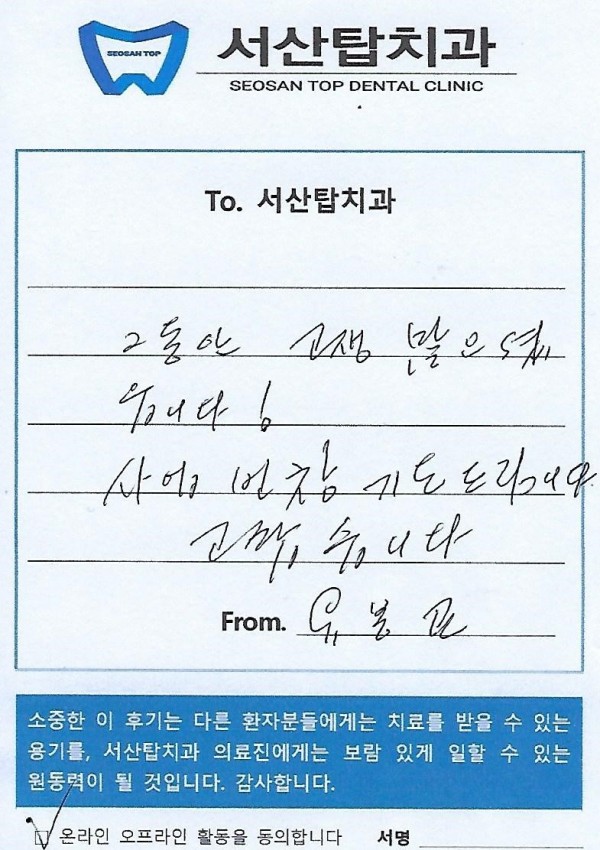 SEOSAN TOP
서산탑치과
SEOSAN TOP DENTAL CLINIC
To. 서산탑치과
그동안 고생 많으셨
습니다!
사업 번창 기도 드립니다
고맙습니다
From. 유봉
소중한 이 후기는 다른 환자분들에게는 치료를 받을 수 있는
용기를, 서산탑치과 의료진에게는 보람 있게 일할 수 있는
원동력이 될 것입니다. 감사합니다.
온라인 오프라인 활동을 동의합니다 서명